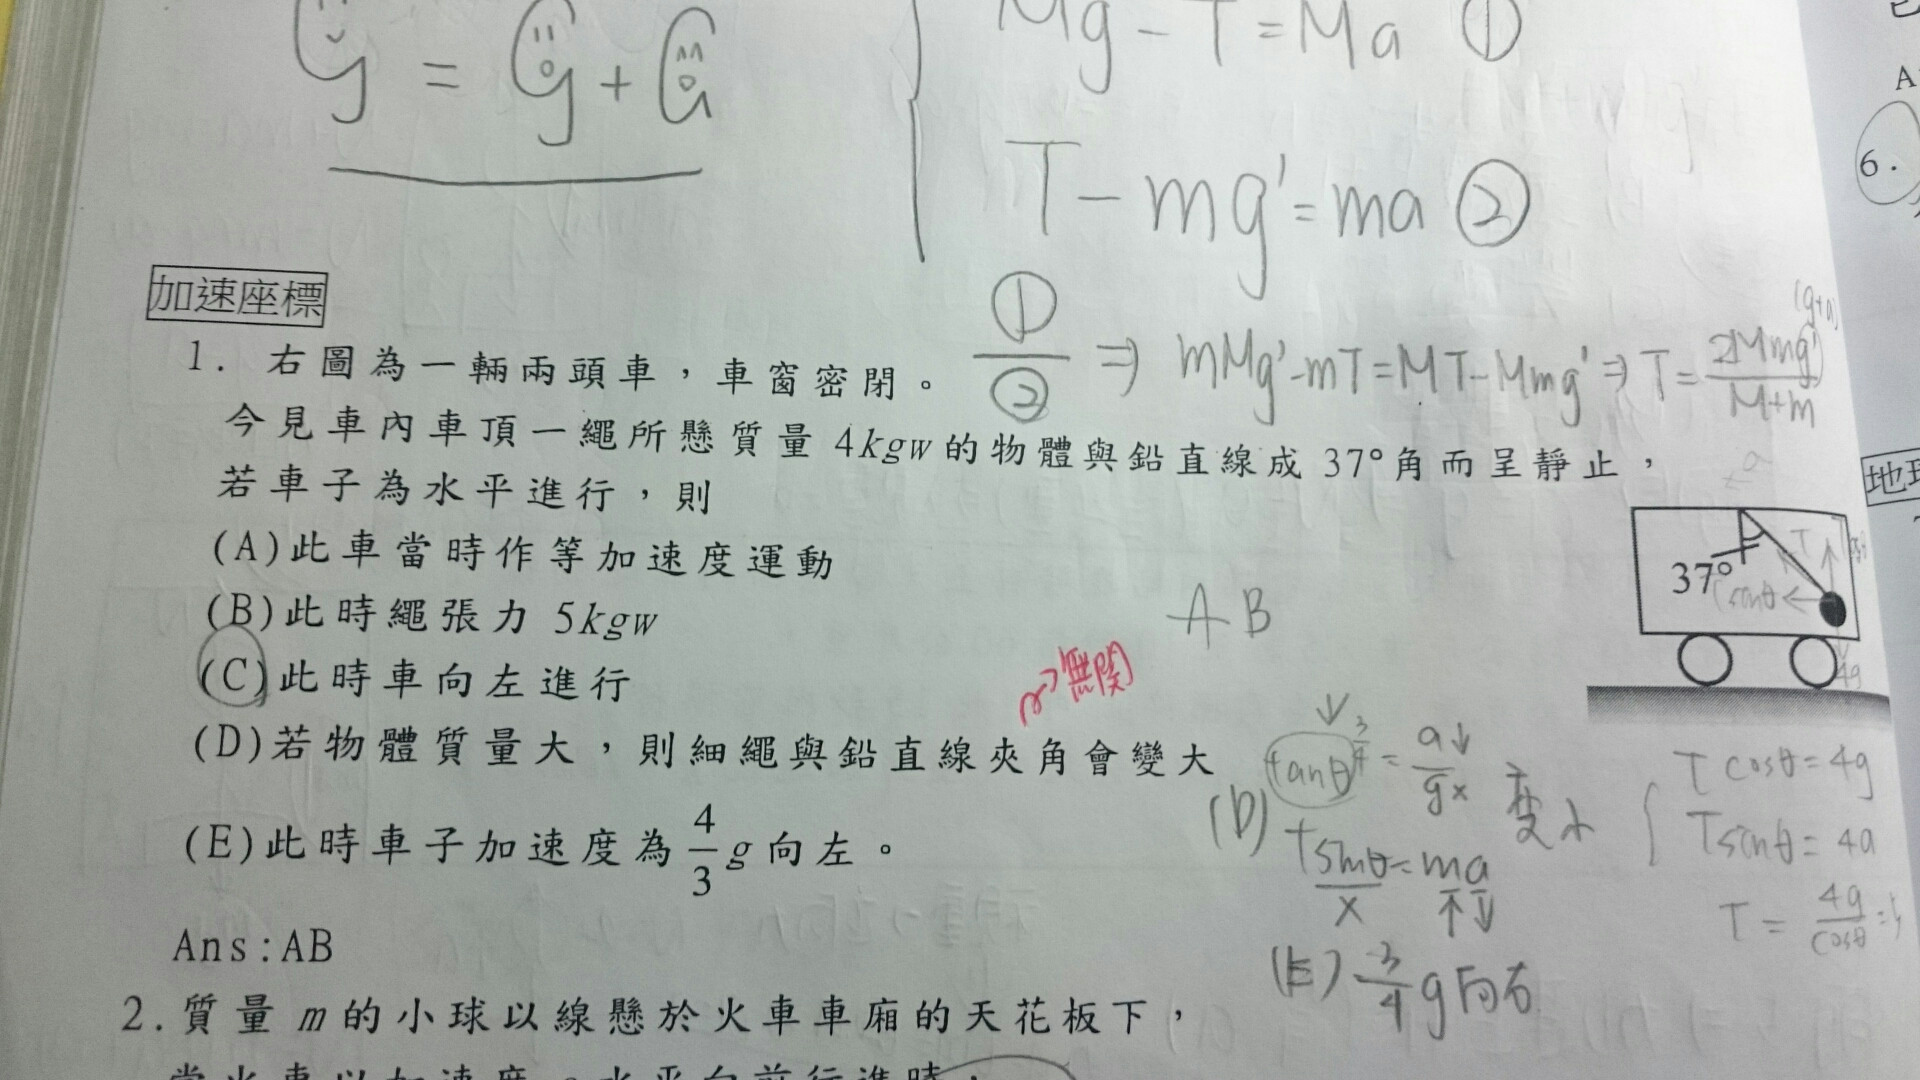 g = g + a
Mg - T = Ma ①
T - mg' = ma ②
加速座標
①/② ⇒ mMg' - mT = MT - Mmg' ⇒ T = 2Mmg'/M+m
(g+a)
1. 右圖為一輛兩頭車，車窗密閉。
今見車內車頂一繩所懸質量 4kgw 的物體與鉛直線成 37° 角而呈靜止，
若車子為水平進行，則
(A)此車當時作等加速度運動
(B)此時繩張力 5kgw
(C)此時車向左進行
(D)若物體質量大，則細繩與鉛直線夾角會變大
(E)此時車子加速度為 4/3 g 向左。
Ans:AB
AB
無関
a
37°
T
Tsinθ
4g
(D) tanθ 3/4 = a↓/g× 变小
Tsinθ = ma
× ↑↓
(E) 3/4 g 向右
Tcosθ = 4g
Tsinθ = 4a
T = 4g/cosθ =
2. 質量 m 的小球以線懸於火車車廂的天花板下，
當火車以加速度 a 水平向前行進時，
6.